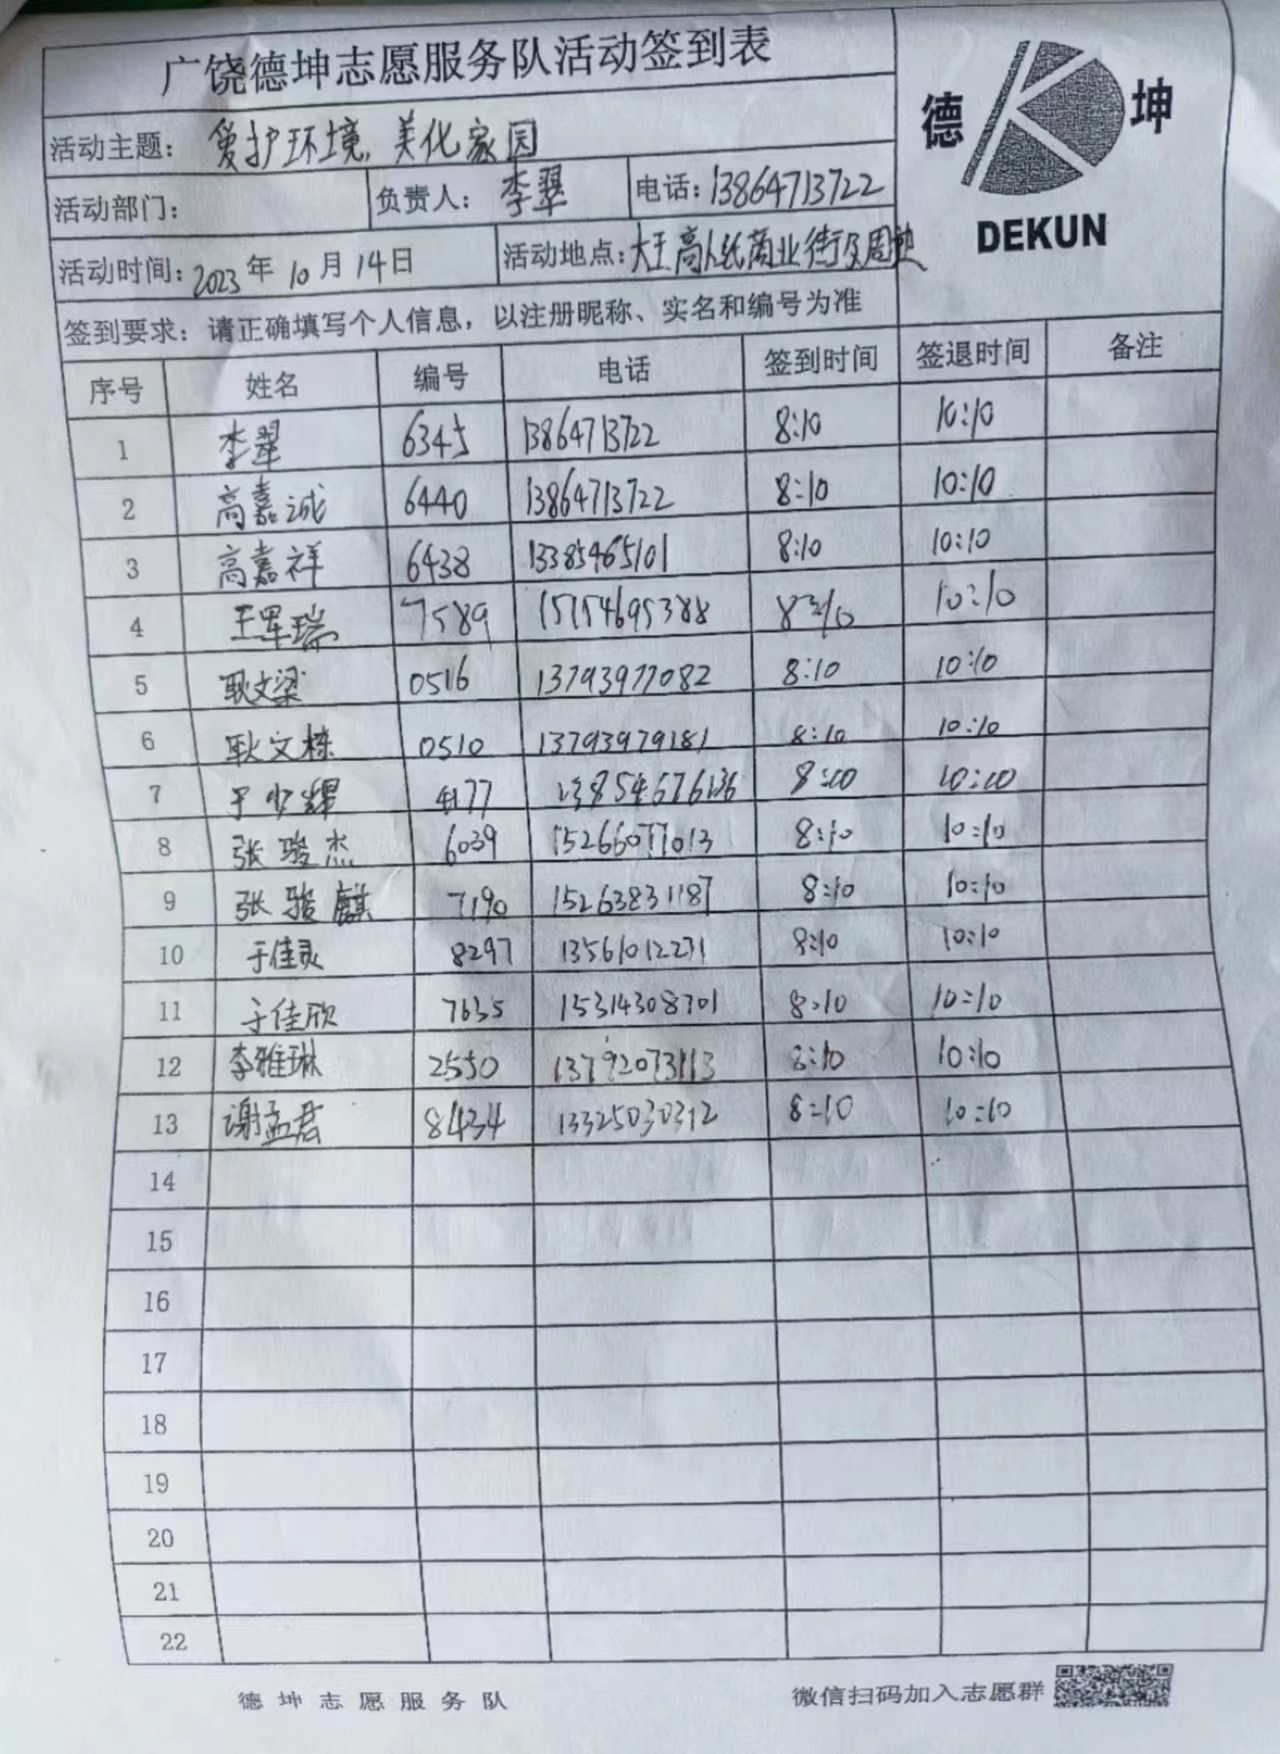 广饶德坤志愿服务队活动签到表
德 坤
DEKUN
活动主题: 爱护环境,美化家园
活动部门: 负责人: 李翠 电话: 13864713722
活动时间: 2023年10月14日 活动地点: 大王高人纸商业街及周边
签到要求: 请正确填写个人信息，以注册昵称、实名和编号为准
序号 姓名 编号 电话 签到时间 签退时间 备注
1 李翠 6345 13864713722 8:10 10:10
2 高嘉诚 6440 13864713722 8:10 10:10
3 高嘉祥 6438 13385465101 8:10 10:10
4 王军瑞 7589 15154695388 10:10
5 耿文梁 0516 13793977082 8:10 10:10
6 耿文栋 0510 13793979181 8:10 10:10
7 于少辉 4177 8:10 10:10
8 张骏杰 6039 15266077013 8:10 10:10
9 张骏麒 7190 15263831187 8:10 10:10
10 于佳灵 8297 13561012271 8:10 10:10
11 于佳欣 7635 15314308701 8:10 10:10
12 李雅琳 2550 13792073113 8:10 10:10
13 谢孟君 8434 13325030312 8:10 10:10
14
15
16
17
18
19
20
21
22
德坤志愿服务队 微信扫码加入志愿群